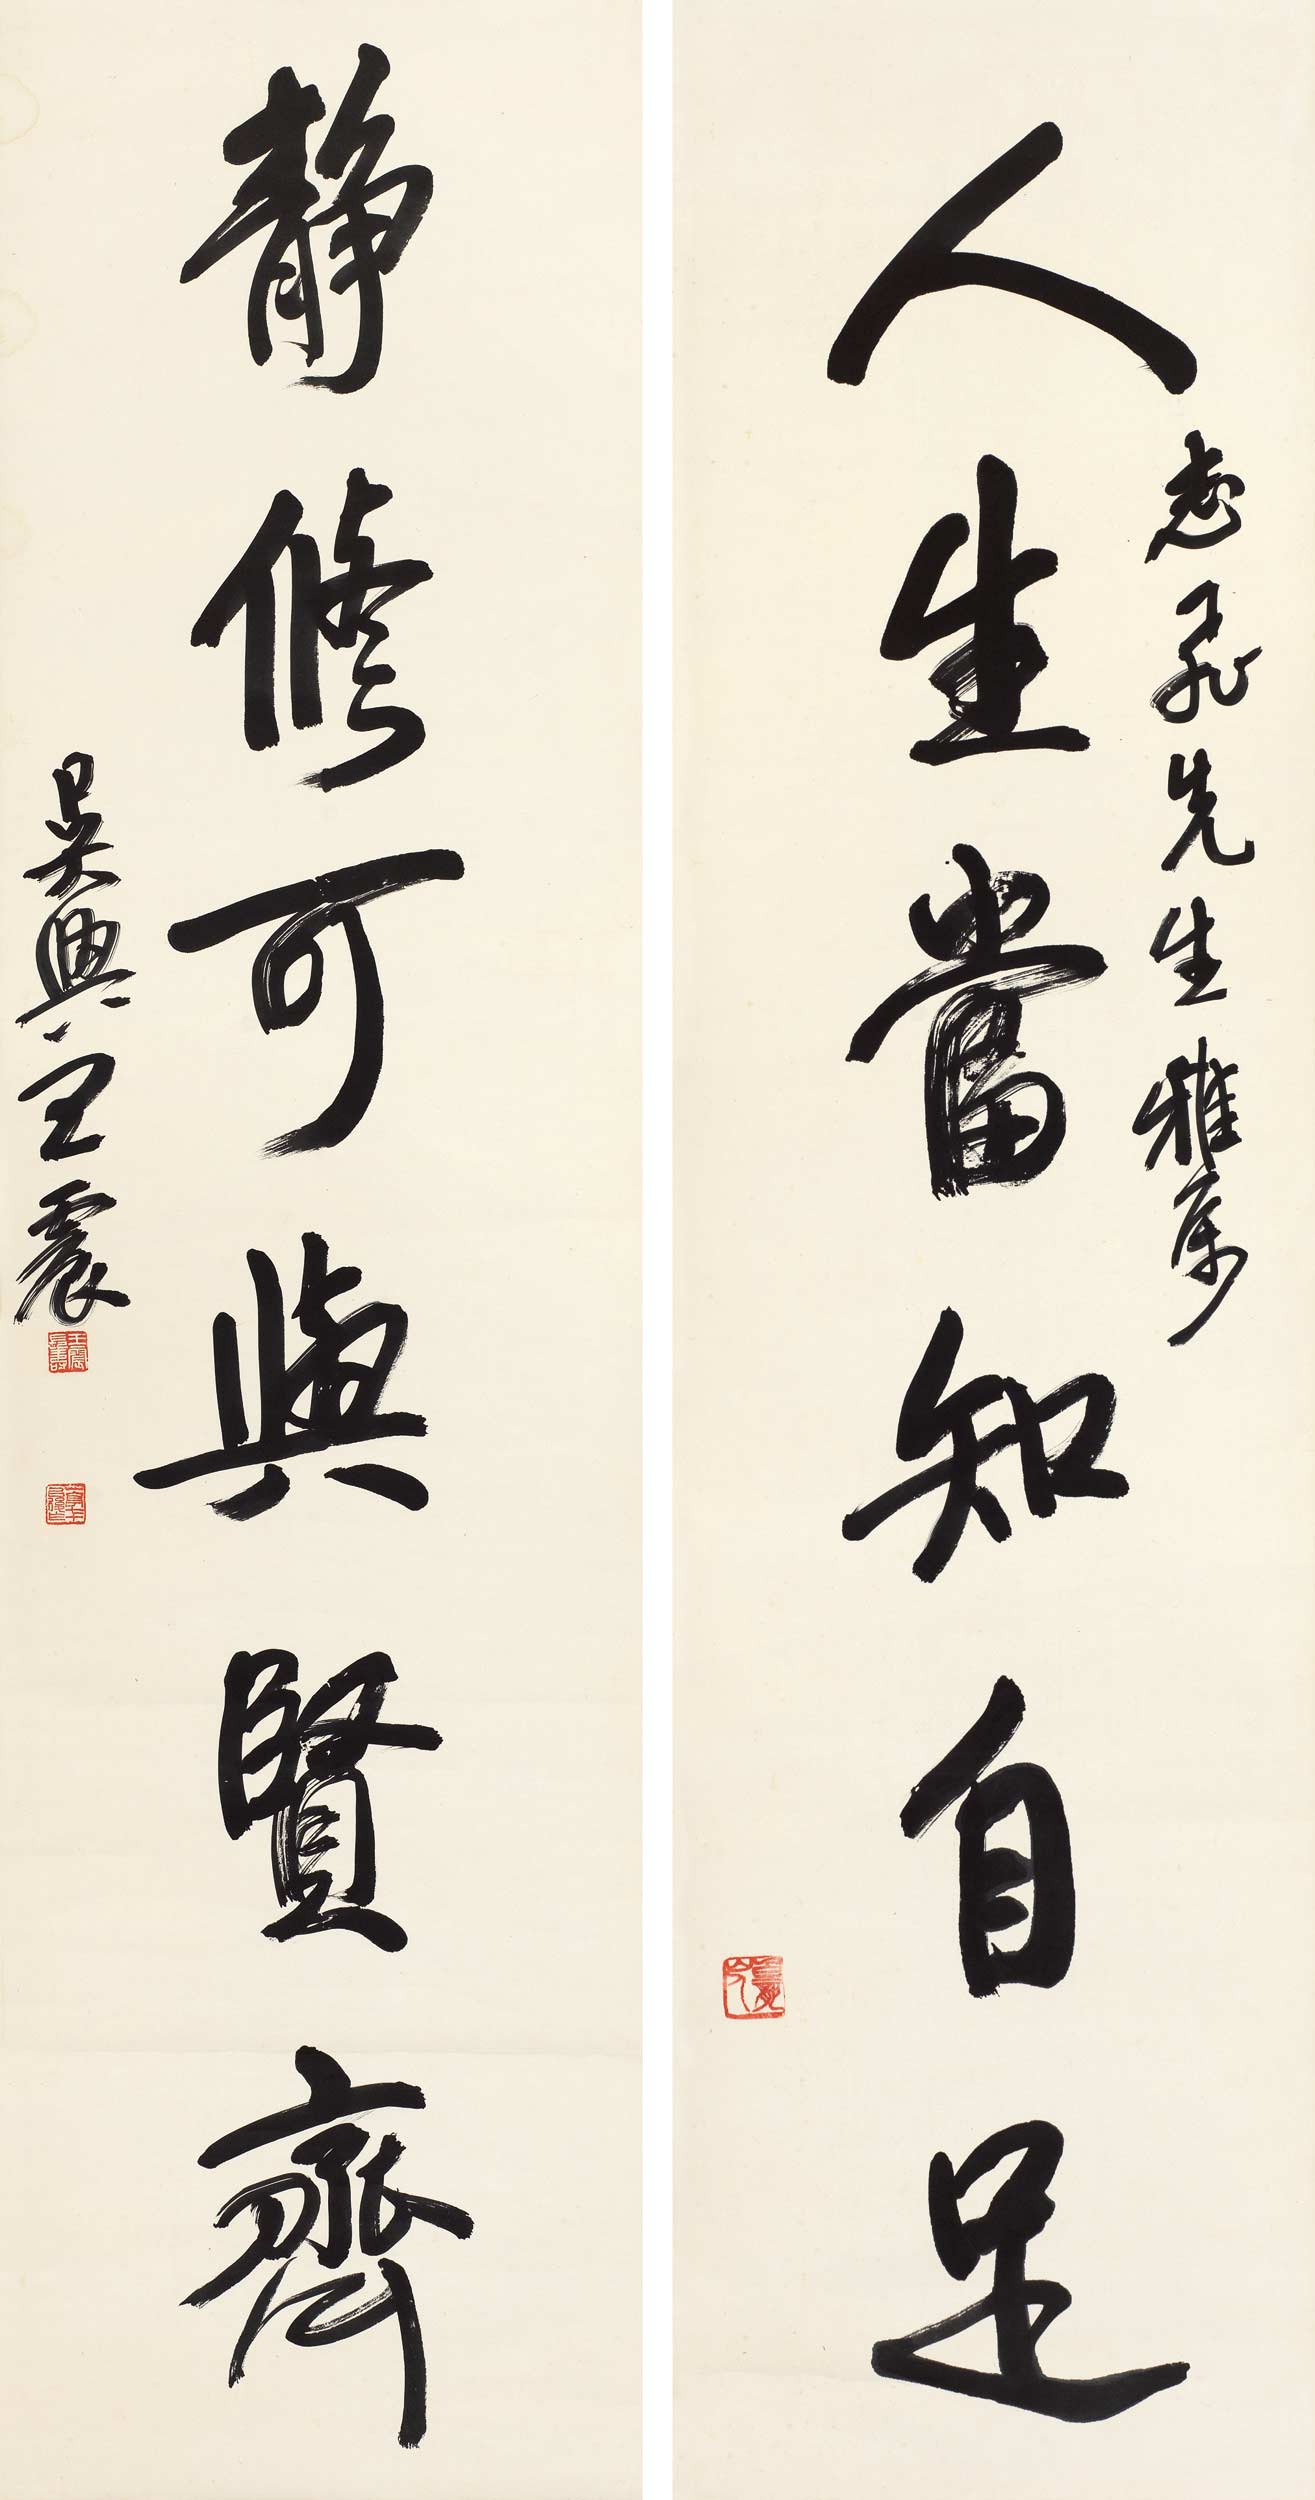 人生當知自足
志飛先生雅屬
靜修可與賢齊
吳興王震
王震長壽